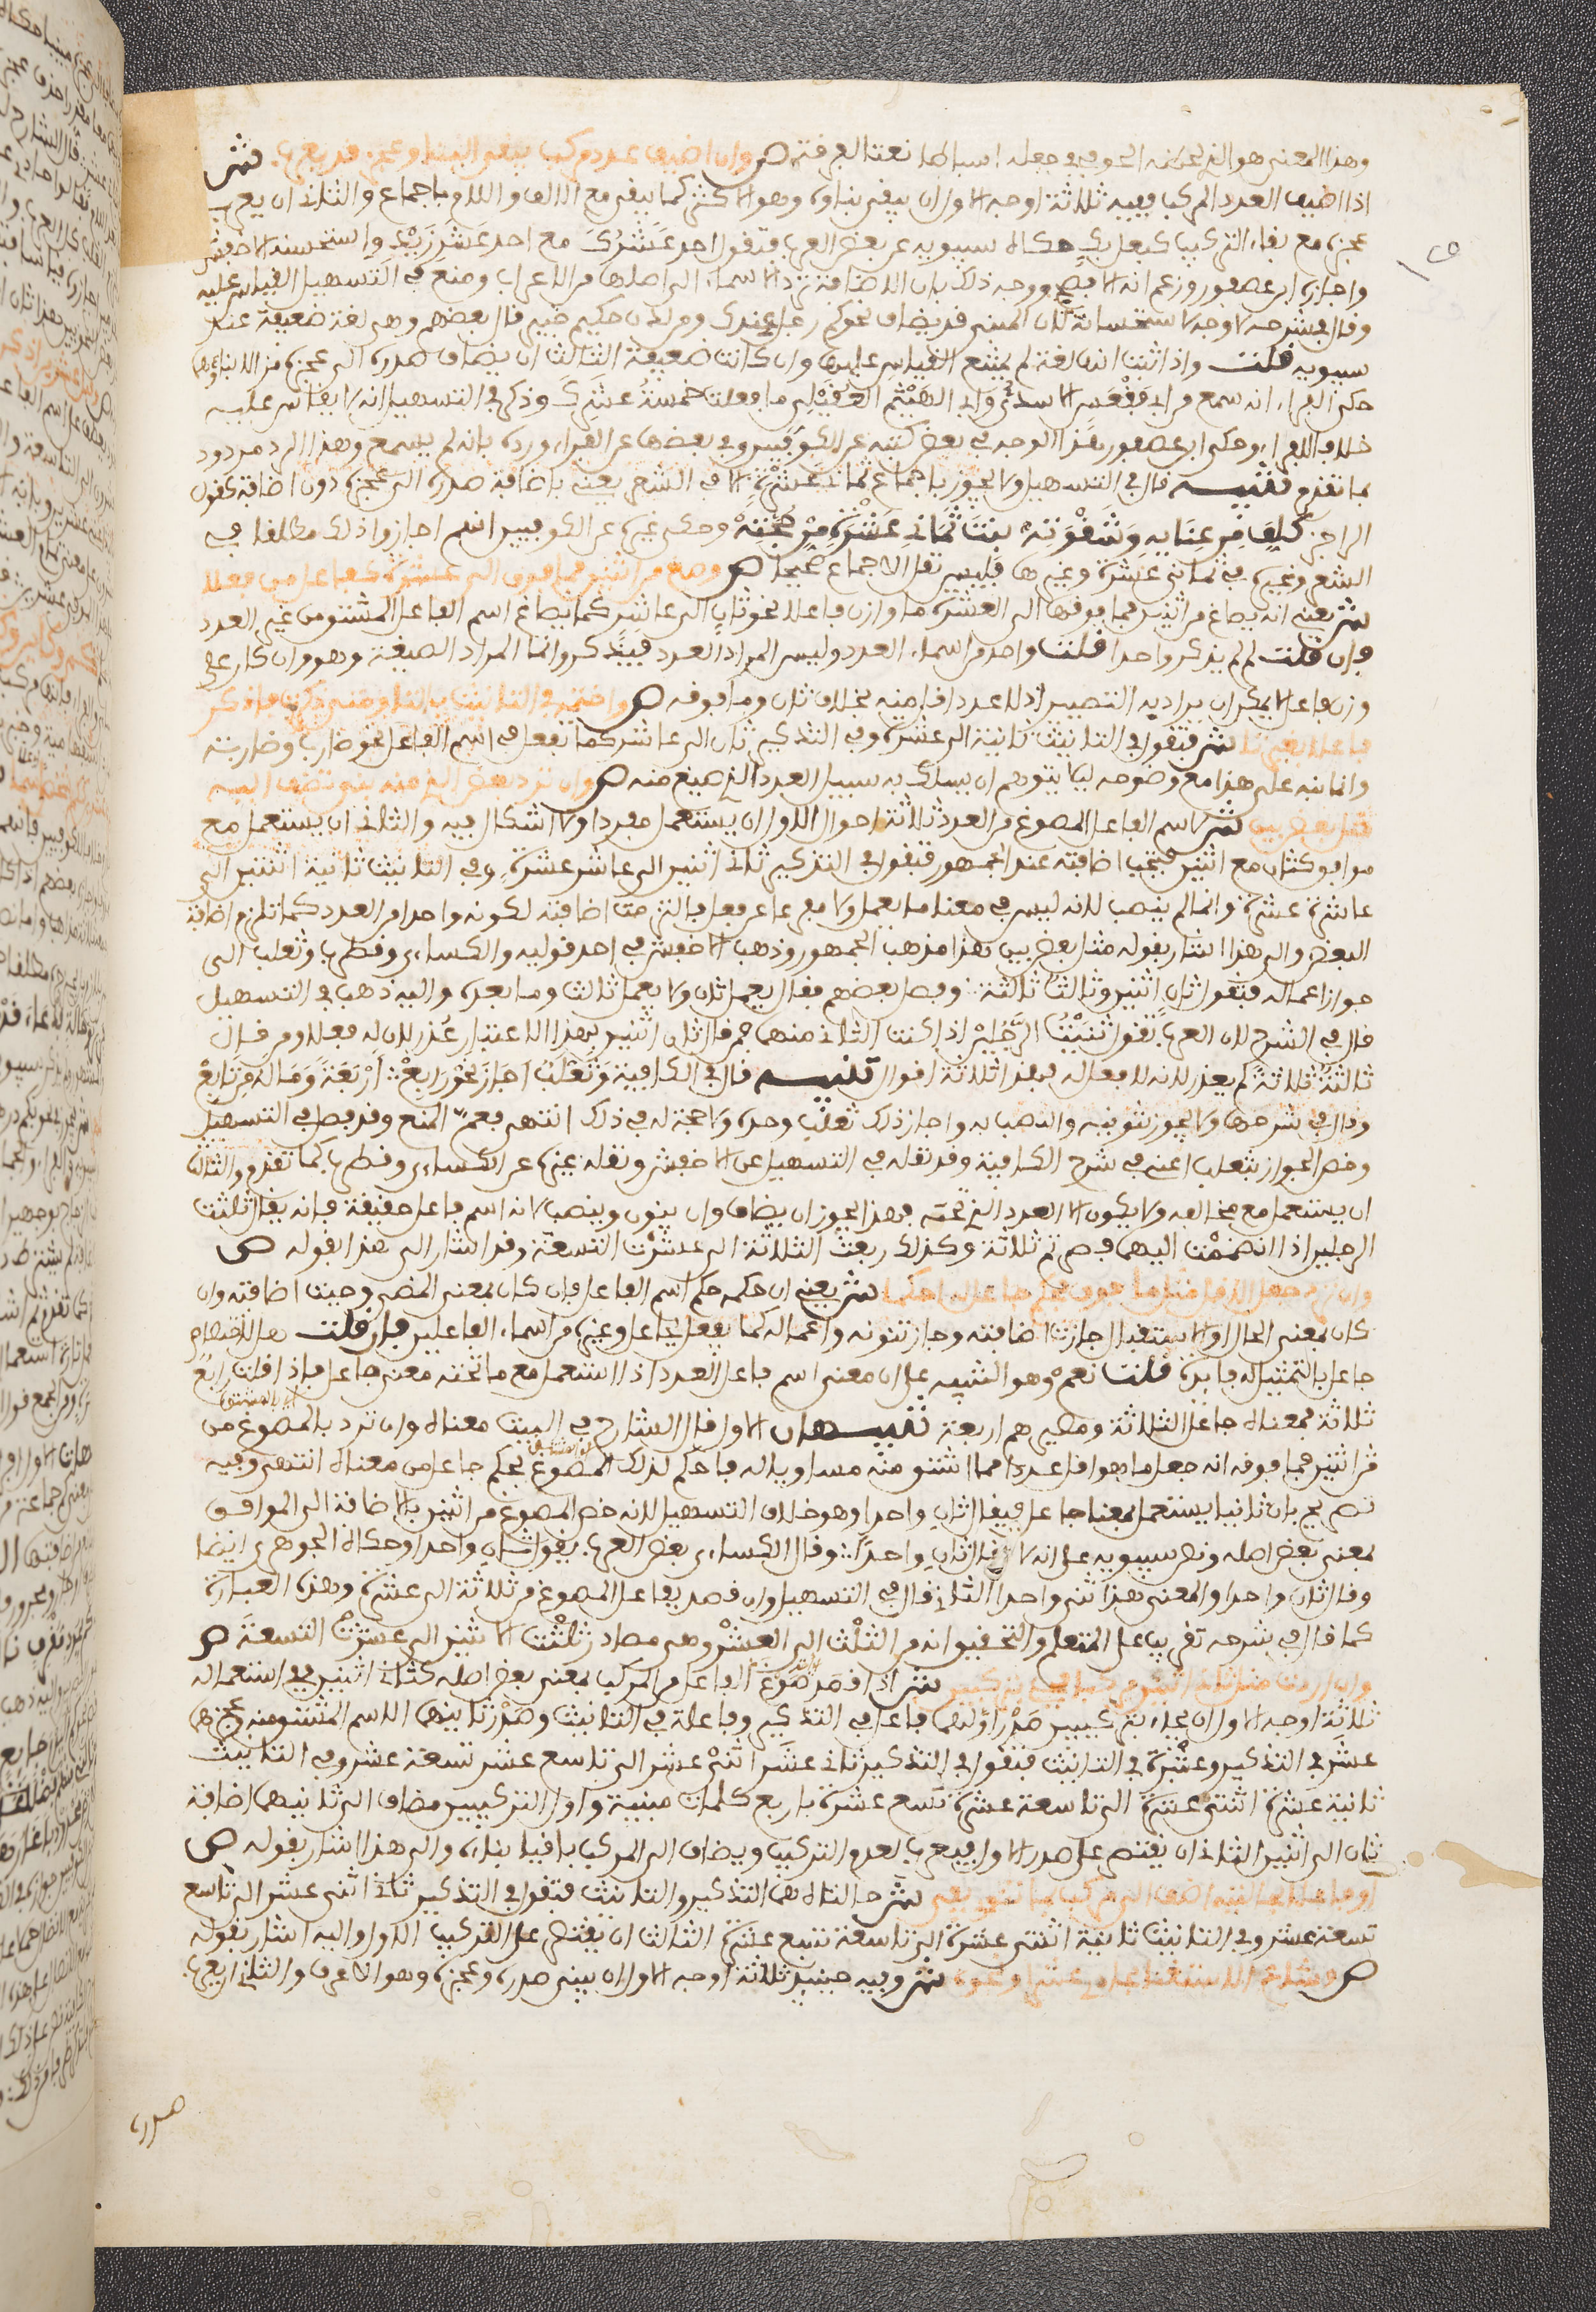 وهذا المعنى هو الذي لحظه الجوفي في جعله اسباطا نعتا لفرقة ص وان اضيف عدد مركب يبقى البنا وعجز قد يعرب ش
اذا اضيف العدد المركب ففيه ثلاثة اوجه الاول ان يبقى بناوه وهو الاكثر كما يبقى مع الالف واللام باجماع والثاني ان يعرب
عجزه مع بقاء التركيب كبعلبك حكاه سيبويه عن بعض العرب فتقول احد عشرك مع احد عشر زيد واستحسنه الاخفش
واختاره ابن عصفور وزعم انه الافصح ووجه ذلك بان الاضافة ترد الاسماء الى اصلها من الاعراب ومنع في التسهيل القياس عليه
وقال في شرحه لا وجه لاستحسانه لان المبني قد يضاف نحو كم رجل عندك ومن لدن حكيم خبير قال بعضهم وهي لغة ضعيفة عند
سيبويه قلت واذا ثبت انها لغة لم يمتنع القياس عليها وان كانت ضعيفة الثالث ان يضاف صدره الى عجزه مزال البناء
حكى الفراء انه سمع من ابي فقعس الاسدي وابي الهيثم العقيلي ما فعلت خمسة عشرك وذكر في التسهيل انه لا يقاس عليه
خلافا للفراء وحكى ابن عصفور هذا الوجه في بعض كتبه عن الكوفيين وفي بعضها عن الفراء ورده بانه لم يسمع وهذا الرد مردود
بما تقدم تنبيه قال في التسهيل ولا يجوز باجماع ثماني عشرة الا في الشعر يعني باضافة صدره الى عجزه دون اضافة كقول
الراجز كلف من عنايه وشقوته بنت ثماني عشرة من حجته وحكى غيره عن الكوفيين انهم اجازوا ذلك مطلقا في
الشعر وغيره في ثماني عشرة وغيرها فليس نقل الاجماع صحيحا ص وصغ من اثنين فما فوق الى عشرة كفاعل من فعلا
ش يعني انه يصاغ من اثنين فما فوقها الى العشرة ما وازن فاعلا نحو ثان الى عاشر كما يصاغ اسم الفاعل المشتق من غير العدد
فان قلت لم لم يذكر واحدا قلت واحد من اسماء العدد وليس المراد العدد فيذكر وانما المراد الصيغة وهو وان كان على
وزن فاعل لا يمكن ان يراد به التصيير اذ لا عدد اقل منه بخلاف ثان وما فوقه ص واختمه في التانيث بالتا ومتى ذكرت فاذكر
فاعلا بغير تا ش فتقول في التانيث ثانية الى عشرة وفي التذكير ثان الى عاشر كما تفعل في اسم الفاعل نحو ضارب وضاربة
وانما نبه على هذا مع وضوحه ليلا يتوهم ان يسلك به سبيل العدد الذي صيغ منه ص وان ترد بعض الذي منه بني تضف اليه
مثل بعض بين ش لاسم الفاعل المصوغ من العدد ثلاثة احوال الاول ان يستعمل مفردا ولا اشكال فيه والثاني ان يستعمل مع
موافق كثان مع اثنين فتجب اضافته عند الجمهور فتقول في التذكير ثاني اثنين الى عاشر عشرة وفي التانيث ثانية اثنتين الى
عاشرة عشرة وانما لم ينصب لانه ليس في معنى ما يعمل ولا مفرعا عن فعل فالتزمت اضافته لكونه واحدا من العدد كما تلزم اضافة
البعض والى هذا اشار بقوله مثل بعض بين هذا مذهب الجمهور وذهب الاخفش في احد قوليه والكساءي وقطرب وثعلب الى
جواز اعماله فتقول ثان اثنين وثالث ثلاثة وفصل بعضهم فقال يعمل ثان ولا يعمل ثالث وما بعده واليه ذهب في التسهيل
قال في الشرح لان العرب تقول ثنيت الرجلين اذا كنت الثاني منهما فمن قال ثان اثنين بهذا الاعتبار عذر لان له فعلا ومن قال
ثالث ثلاثة لم يعذر لانه لا فعل له فهذه ثلاثة اقوال تنبيه قال في الكافية وثعلب اجاز نحو رابع اربعة وما له من تابع
وقال في شرحها ولا يجوز تنوينه والنصب به واجاز ذلك ثعلب وحده ولا حجة له في ذلك انتهى فعم المنع وقد فصل في التسهيل
وخص الجواز بثعلب اعني في شرح الكافية وقد نقله في التسهيل عن الاخفش ونقله غيره عن الكساءي وقطرب كما تقدم والثالث
ان يستعمل مع مخالفه ولا يكون الا العدد الذي تحته فهذا يجوز ان يضاف وان ينون وينصب لانه اسم فاعل حقيقة فانه يقال ثلثت
الرجلين اذا انضممت اليهما فصرتم ثلاثة وكذلك ربعت الثلاثة الى عشرت التسعة وقد اشار الى هذا بقوله ص
وان ترد جعل الاقل مثل ما فوق فحكم جاعل له احكما ش يعني ان حكمه حكم اسم الفاعل فان كان بمعنى المضي وجبت اضافته وان
كان بمعنى الحال او الاستقبال جازت اضافته وجاز تنوينه واعماله كما يفعل بجاعل وغيره من اسماء الفاعلين فان قلت هل لاختصاص
جاعل بالتمثيل له فايدة قلت نعم وهو التنبيه على ان معنى اسم فاعل العدد اذا استعمل مع ما تحته معنى جاعل فاذا قلت رابع
ثلاثة فمعناه جاعل الثلاثة ومصيرهم اربعة تنبيهان الاول قال الشارح في البيت معناه وان ترد بالمصوغ من
من اثنين فما فوقه انه جعل ما هو اقل عددا مما اشتق منه مساويا له فاحكم لذلك المصوغ بحكم جاعل من معناه انتهى وفيه
تصريح بان ثانيا يستعمل بمعنى جاعل فيقال ثان واحدا وهو خلاف التسهيل لانه خص المصوغ من اثنين بالاضافة الى الموافق
بمعنى بعض اصله ونص سيبويه على انه لا يقال ثان واحدا وقال الكساءي بعض العرب يقول ثان واحدا وحكاه الجوهري ايضا
وقال ثان واحدا والمعنى هذا ثنى واحدا الثاني قال في التسهيل وان قصد بفاعل المصوغ من ثلاثة الى عشرة وهذه العبارة
كما قال في شرحه تقريب على المتعلم والتحقيق انه من الثلث الى العشر وهي مصادر ثلثت الاثنين الى عشرت التسعة ص
وان اردت مثل ثاني اثنين مركبا فجئ بتركيبين ش اذا قصد صوغ الفاعل من المركب بمعنى بعض اصله كثاني اثنين ففي استعماله
ثلاثة اوجه الاول ان يجاء بتركيبين صدر اولهما فاعل في التذكير وفاعلة في التانيث وصدر ثانيهما الاسم المشتق منه وعجزهما
عشر في التذكير وعشرة في التانيث فتقول في التذكير ثاني عشر اثني عشر الى تاسع عشر تسعة عشر وفي التانيث
ثانية عشرة اثنتي عشرة الى تاسعة عشرة تسع عشرة باربع كلمات مبنية واول التركيبين مضاف الى ثانيهما اضافة
ثان الى اثنين الثاني ان يقتصر على صدر الاول فيعرب لعدم التركيب ويضاف الى المركب باقيا بناوه والى هذا اشار بقوله ص
او فاعلا بحالتيه اضف الى مركب بما تنوي يفي ش حالتاه هما التذكير والتانيث فتقول في التذكير ثاني اثني عشر الى تاسع
تسعة عشر وفي التانيث ثانية اثنتي عشرة الى تاسعة تسع عشرة الثالث ان يقتصر على التركيب الاول واليه اشار بقوله
ص وشاع الاستغنا بحادي عشرا ونحوه ش وفيه حينيذ ثلاثة اوجه الاول ان يبنى صدره وعجزه وهو الاعرف والثاني ان يعرب
صدره